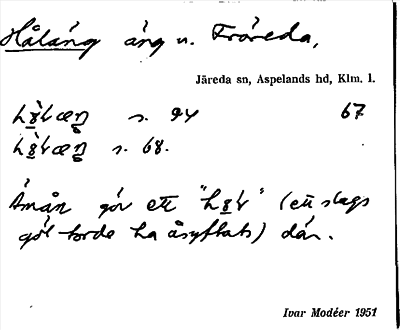 Håläng äng u. Fröreda,
Järeda sn, Aspelands hd, Klm. l.
s. 94 67
s. 68.
Åmån gör ett " " (ett slags
göl torde ha åsyftats) där.
Ivar Modéer 1951